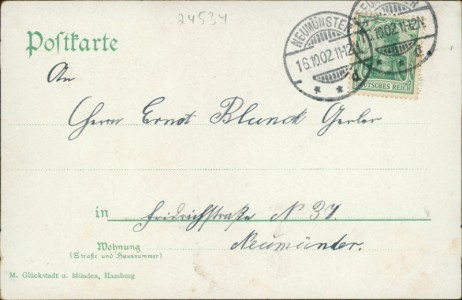 24534
Postkarte
NEUMÜNSTER
16.10.02.11-12
NEUMÜNSTER
16.10.02.11-12
DEUTSCHES REICH
An
Herrn Ernst Blunck Gerber
in Friedrichstraße N 37.
Wohnung
(Straße und Hausnummer)
Neumünster.
M. Glückstadt u. Münden, Hamburg